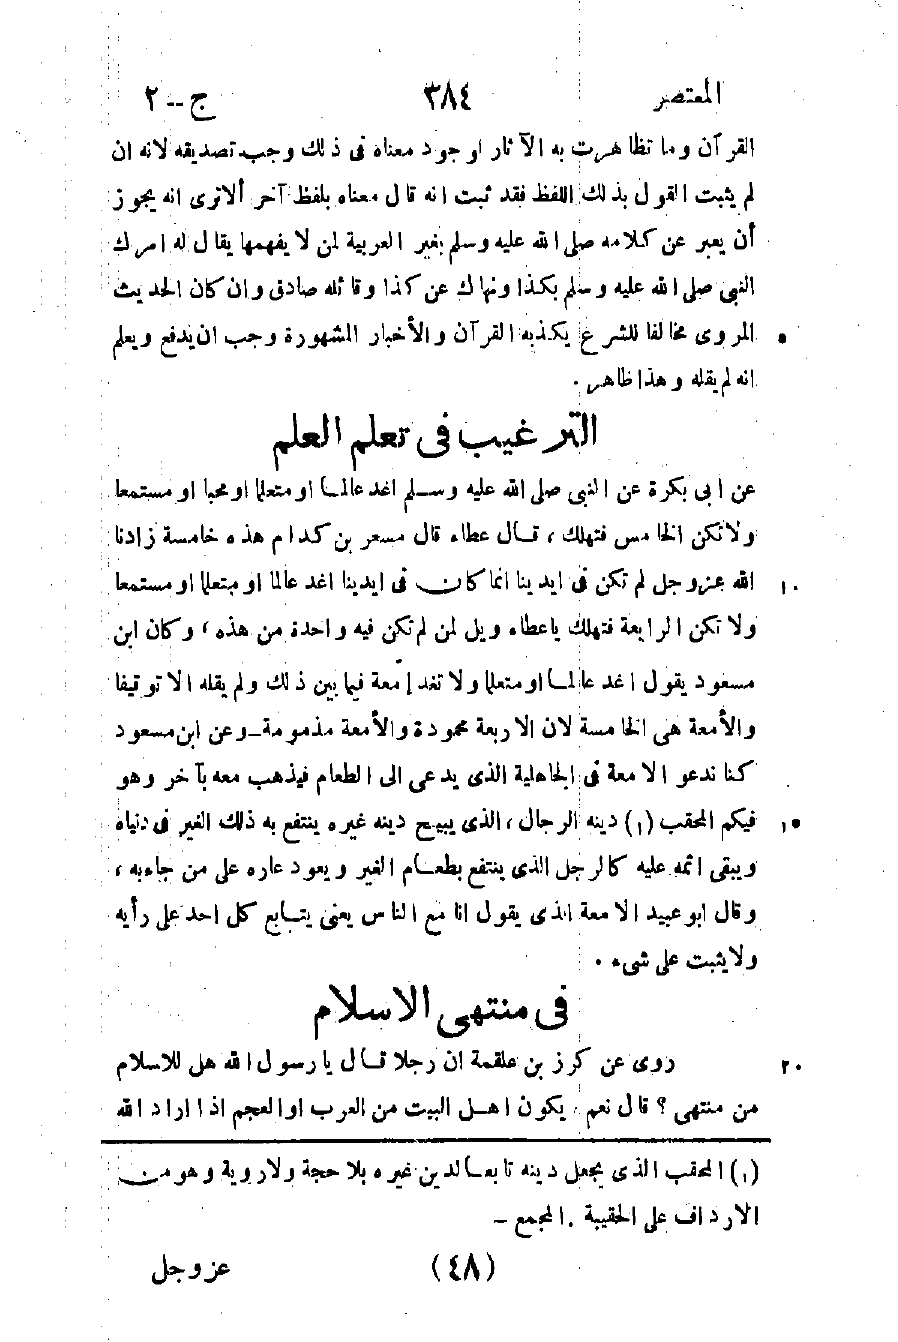 المعتصر ٣٨٤ ج--٢
القرآن وما تظاهرت به الآثار او جود معناه فى ذلك وجب تصديقه لانه ان
لم يثبت القول بذلك اللفظ فقد ثبت انه قال معناه بلفظ آخر ألاترى انه يجوز
أن يعبر عن كلامه صلى الله عليه وسلم بغير العربية لمن لا يفهمها يقال له امرك
النبى صلى الله عليه وسلم بكذا ونهاك عن كذا وقائله صادق وان كان الحديث
المروى مخالفا للشرع يكذبه القرآن والأخبار المشهورة وجب ان يدفع ويعلم ٥
انه لم يقله وهذا ظاهر .
الترغيب فى تعلم العلم
عن ابى بكرة عن النبى صلى الله عليه وسلم اغد عالما او متعلما او محبا او مستمعا
ولاتكن الخامس فتهلك ، قال عطاء قال مسعر بن كدام هذه خامسة زادنا
الله عزوجل لم تكن فى ايدينا انما كان فى ايدينا اغد عالما او متعلما او مستمعا ١٠
ولا تكن الرابعة فتهلك ياعطاء ويل لمن لم تكن فيه واحدة من هذه ، وكان ابن
مسعود يقول اغد عالما او متعلما ولا تغد إمّعة فيما بين ذلك ولم يقله الا توقيفا
والأمعة هى الخامسة لان الاربعة محمودة والأمعة مذمومة-وعن ابن مسعود
كنا ندعو الامعة فى الجاهلية الذى يدعى الى الطعام فيذهب معه بآخر وهو
فيكم المحقب (١) دينه الرجال ، الذى يبيح دينه غيره ينتفع به ذلك الغير فى دنياه ١٥
ويبقى اثمه عليه كالرجل الذى ينتفع بطعام الغير ويعود عاره على من جاءبه ،
وقال ابو عبيد الامعة الذى يقول انا مع الناس يعنى يتابع كل احد على رأيه
ولايثبت على شىء .
فى منتهى الاسلام
روى عن كرز بن علقمة ان رجلا قال يا رسول الله هل للاسلام ٢٠
من منتهى ؟ قال نعم ، يكون اهل البيت من العرب او العجم اذا اراد الله
(١) المحقب الذى يجعل دينه تابعا لدين غيره بلا حجة ولا روية وهو من
الارداف على الحقيبة . المجمع -
(٤٨) عز وجل